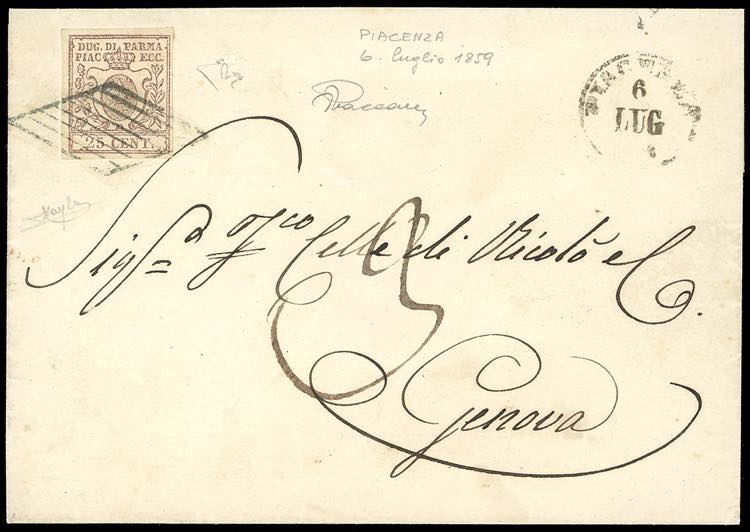 DUG. DI PARMA
PIAC ECC.
25 CENT.
PIACENZA
6. luglio 1859
PIACENZA
6
LUG
3
Celle di Nicolò e C.
Genova